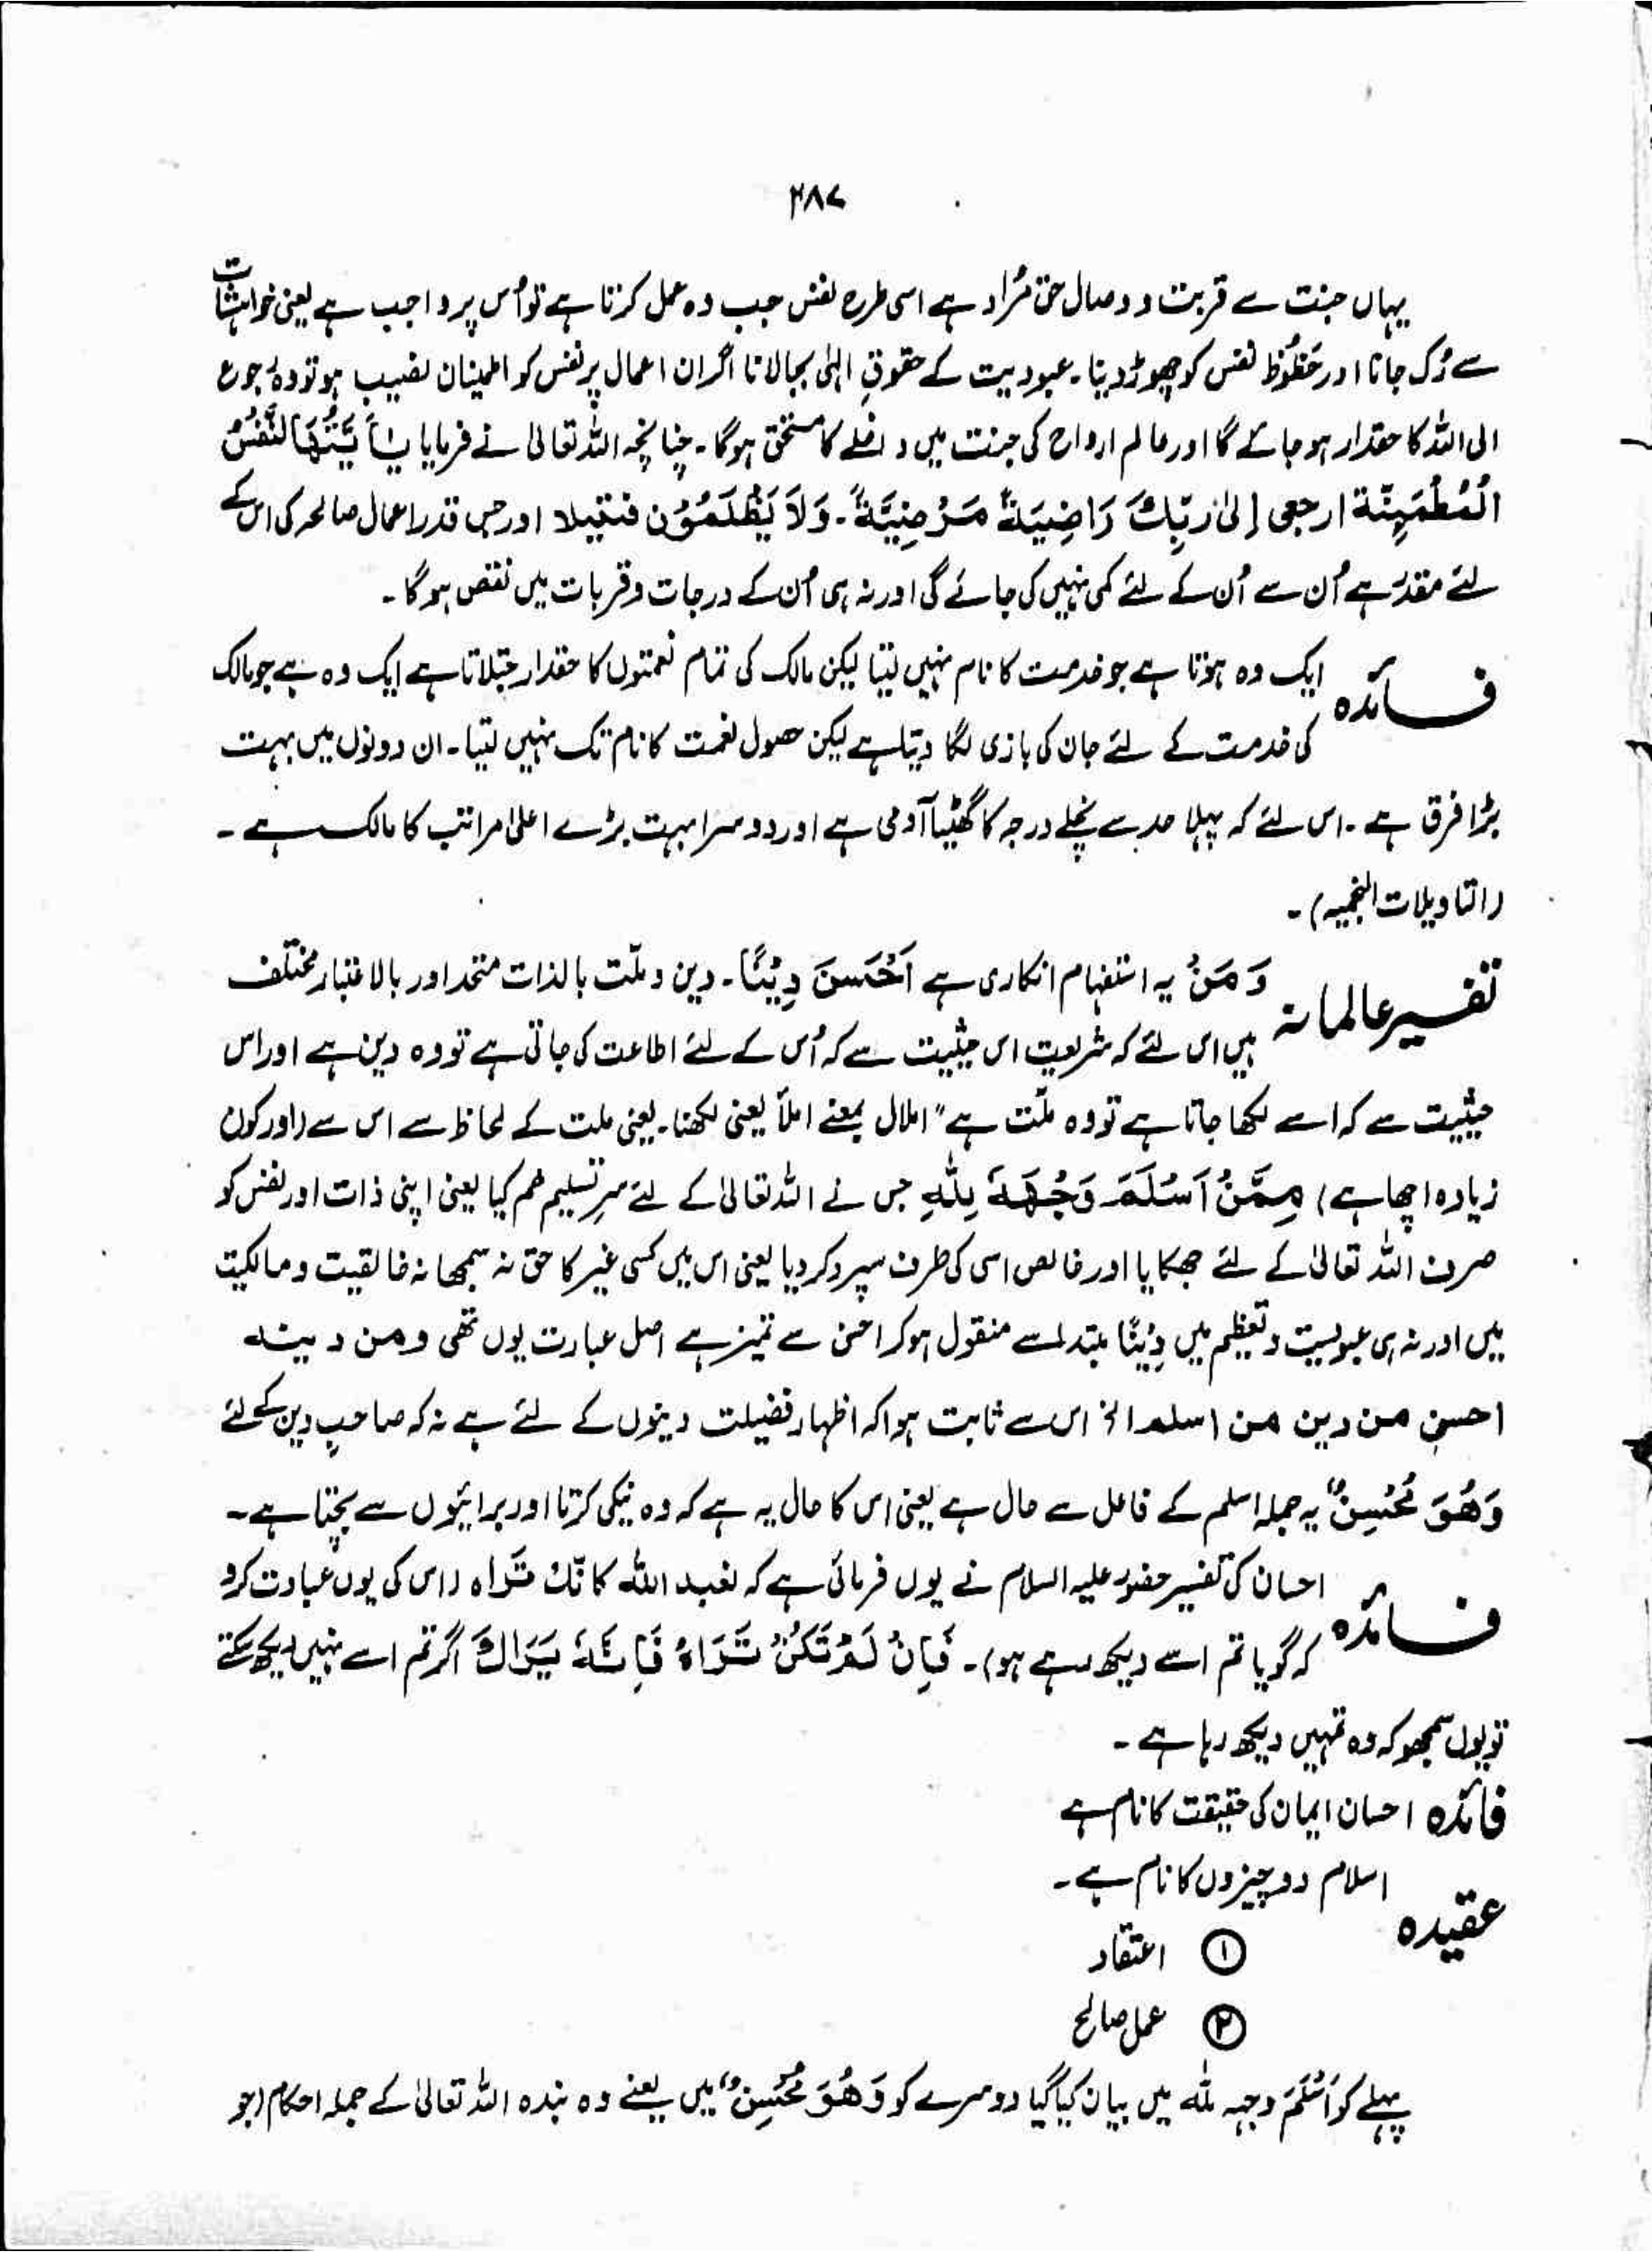 ۲۸۷
یہاں جنت سے قربت و وصال حق مُراد ہے اسی طرح نفس جب وہ عمل کرتا ہے تو اُس پر واجب ہے یعنی خواہشات
سے رُک جانا اور حَظُوظ نفس کو چھوڑ دینا۔ عبودیت کے حقوقِ الہٰی بجا لانا اگر ان اعمال پر نفس کو اطمینان نصیب ہو تو وہ رُجوع
الی اللہ کا حقدار ہو جائے گا اور عالم ارواح کی جنت میں داخلے کا مستحق ہوگا۔ چنانچہ اللہ تعالیٰ نے فرمایا یٰۤاَ یَّتُهَا النَّفْسُ
الْمُطْمَئِنَّة ارجعی اِلیٰ رَبِّكَ رَاضِیَةً مَرْضِیَّةً۔ وَلَا یَظْلَمُوْن فتیلا اور جس قدر اعمال صالحہ کی اس کے
لئے مقدر ہے اُن سے اُن کے لئے کمی نہیں کی جائے گی اور نہ ہی اُن کے درجات و قربات میں نقص ہوگا۔
فائدہ ایک وہ ہوتا ہے جو خدمت کا نام نہیں لیتا لیکن مالک کی تمام نعمتوں کا حقدار جتلاتا ہے ایک وہ ہے جو مالک
کی خدمت کے لئے جان کی بازی لگا دیتا ہے لیکن حصول نعمت کا نام تک نہیں لیتا۔ ان دونوں میں بہت
بڑا فرق ہے۔ اس لئے کہ پہلا حد سے نچلے درجہ کا گھٹیا آدمی ہے اور دوسرا بہت بڑے اعلیٰ مراتب کا مالک ہے۔
(التاویلات النجمیہ)۔
تفسیر عالمانہ وَ مَنْ یہ استفہام انکاری ہے اَحْسَنَ دِیْنًا۔ دین و ملّت بالذات متحد اور بالاعتبار مختلف
ہیں اس لئے کہ شریعت اس حیثیت سے کہ اُس کے لئے اطاعت کی جاتی ہے تو وہ دین ہے اور اس
حیثیت سے کہ اسے لکھا جاتا ہے تو وہ ملّت ہے "املال بمعنے املاً یعنی لکھنا۔ یعنی ملت کے لحاظ سے اس سے (اور کون
زیادہ اچھا ہے) مِمَّنْ اَسْلَمَ وَجْهَهَٗ لِلّٰهِ جس نے اللہ تعالیٰ کے لئے سرِ تسلیم خم کیا یعنی اپنی ذات اور نفس کو
صرف اللہ تعالیٰ کے لئے جھکایا اور خالص اسی کی طرف سپرد کر دیا یعنی اس میں کسی غیر کا حق نہ سمجھا نہ خالقیت و مالکیت
میں اور نہ ہی عبودیت و تعظیم میں دِیْنًا مبتدا سے منقول ہو کر احسن سے تمیز ہے اصل عبارت یوں تھی و من دینه
احسن من دین من اسلم الخ اس سے ثابت ہوا کہ اظہار فضیلت دینوں کے لئے ہے نہ کہ صاحبِ دین کے لئے
وَهُوَ مُحْسِنٌ" یہ جملہ اسلم کے فاعل سے حال ہے یعنی اس کا حال یہ ہے کہ وہ نیکی کرتا اور برائیوں سے بچتا ہے۔
فائدہ احسان کی تفسیر حضور علیہ السلام نے یوں فرمائی ہے کہ تعبد اللہ کانّك تَراه (اس کی یوں عبادت کرو
کہ گویا تم اسے دیکھ رہے ہو)۔ فَاِنْ لَمْ تَکُنْ تَرَاهُ فَاِنَّهَٗ یَرَاكَ اگر تم اسے نہیں دیکھ سکتے
تو یوں سمجھو کہ وہ تمہیں دیکھ رہا ہے۔
فائدہ احسان ایمان کی حقیقت کا نام ہے
عقیدہ اسلام دو چیزوں کا نام ہے۔
① اعتقاد
② عمل صالح
پہلے کو اَسْلَمَ وجہہ للہ میں بیان کیا گیا دوسرے کو وَهُوَ مُحْسِنٌ" میں یعنے وہ بندہ اللہ تعالیٰ کے جملہ احکام (جو